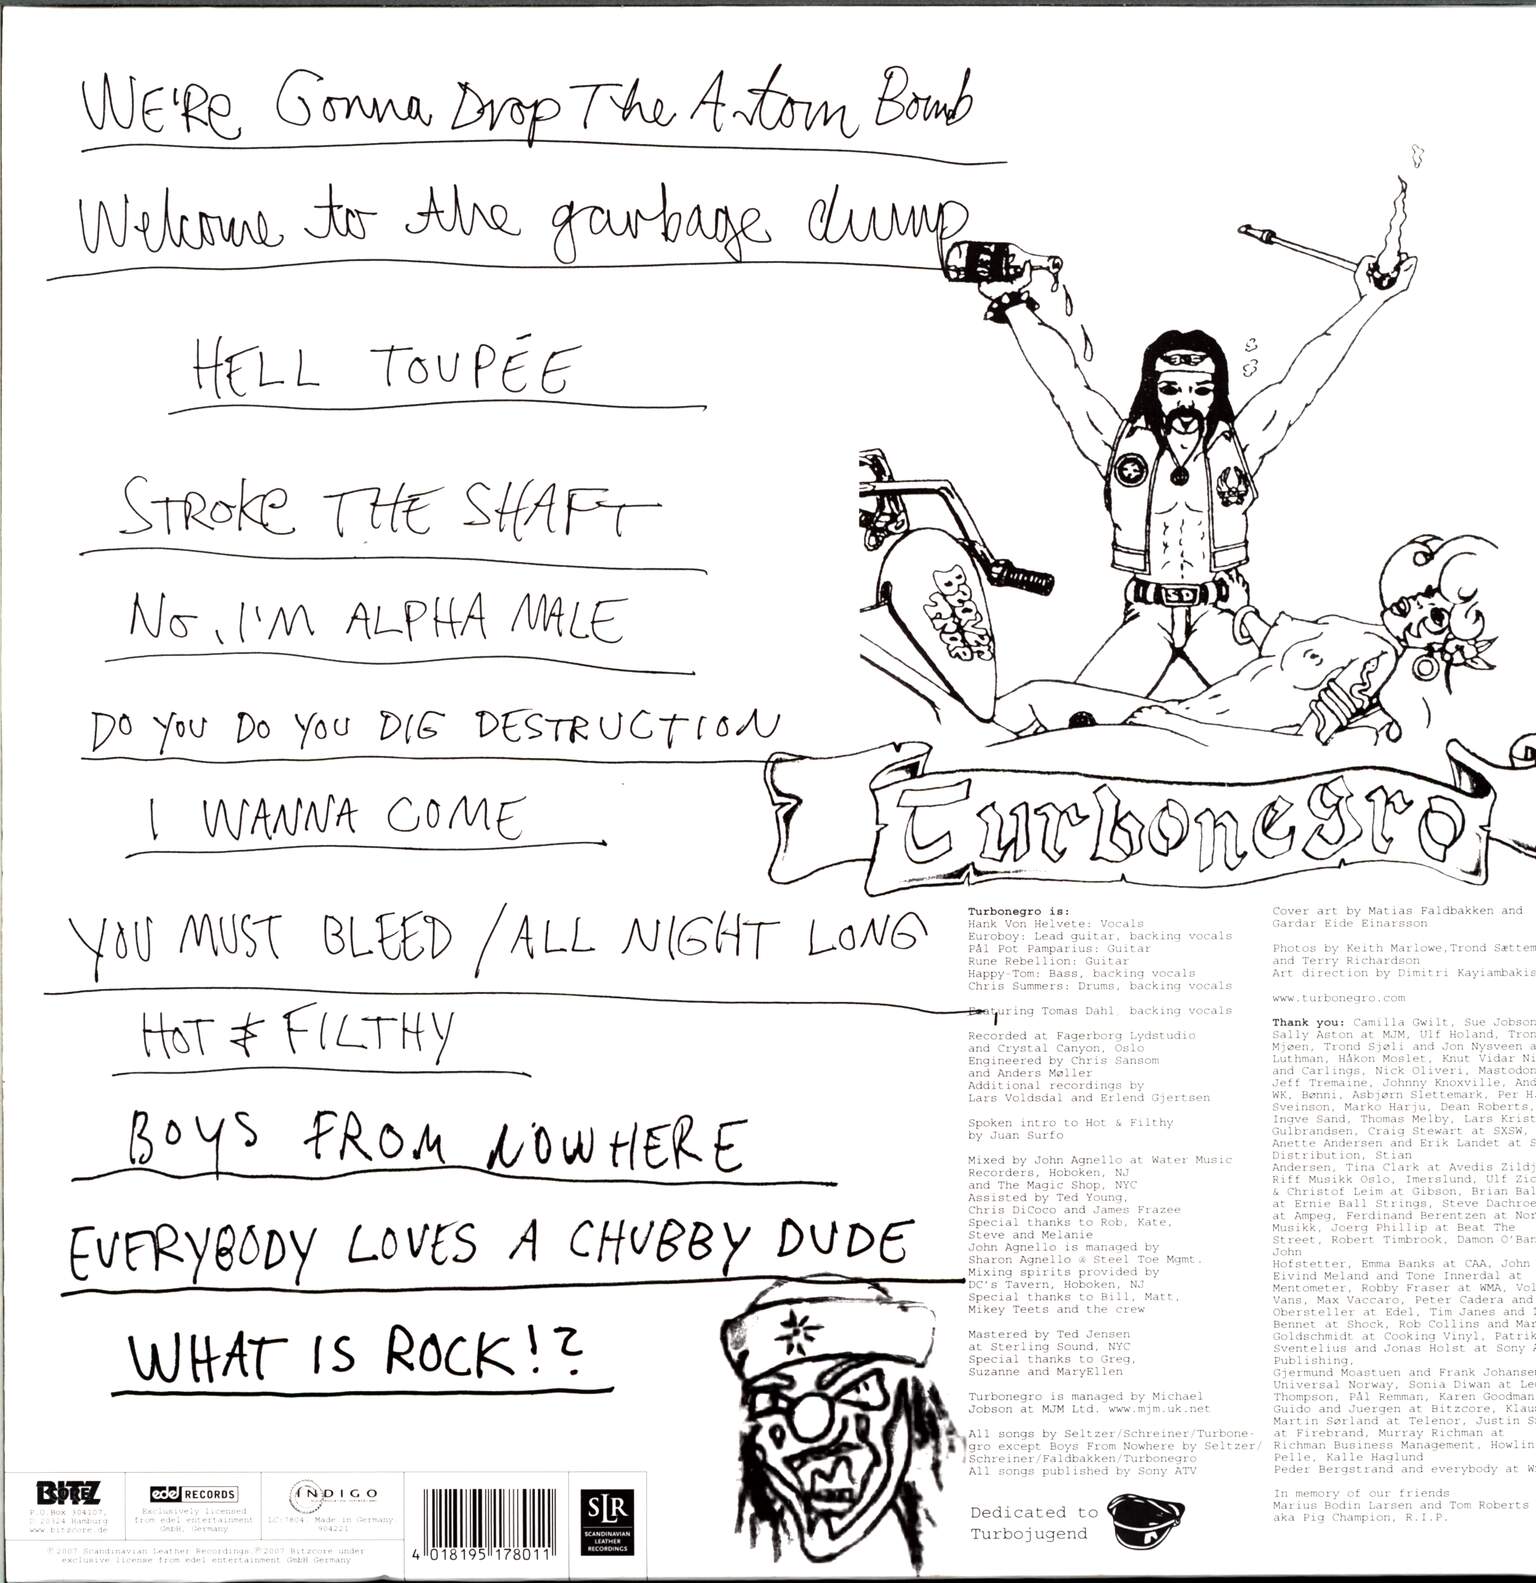 WE'RE Gonna Drop The A-tom Bomb
Welcome to the garbage dump
HELL TOUPÉE
STROKE THE SHAFT
NO, I'M ALPHA MALE
DO YOU DO YOU DIG DESTRUCTION
I WANNA COME
YOU MUST BLEED / ALL NIGHT LONG
HOT & FILTHY
BOYS FROM NOWHERE
EVERYBODY LOVES A CHUBBY DUDE
WHAT IS ROCK!?
SD
Turbonegro
Turbonegro is:
Hank Von Helvete: Vocals
Euroboy: Lead guitar, backing vocals
Pål Pot Pamparius: Guitar
Rune Rebellion: Guitar
Happy-Tom: Bass, backing vocals
Chris Summers: Drums, backing vocals
Featuring Tomas Dahl, backing vocals
Recorded at Fagerborg Lydstudio
and Crystal Canyon, Oslo
Engineered by Chris Sansom
and Anders Møller
Additional recordings by
Lars Voldsdal and Erlend Gjertsen
Spoken intro to Hot & Filthy
by Juan Surfo
Mixed by John Agnello at Water Music
Recorders, Hoboken, NJ
and The Magic Shop, NYC
Assisted by Ted Young,
Chris DiCoco and James Frazee
Special thanks to Rob, Kate,
Steve and Melanie
John Agnello is managed by
Sharon Agnello @ Steel Toe Mgmt.
Mixing spirits provided by
DC's Tavern, Hoboken, NJ
Special thanks to Bill, Matt,
Mikey Teets and the crew
Mastered by Ted Jensen
at Sterling Sound, NYC
Special thanks to Greg,
Suzanne and MaryEllen
Turbonegro is managed by Michael
Jobson at MJM Ltd. www.mjm.uk.net
All songs by Seltzer/Schreiner/Turbone-
gro except Boys From Nowhere by Seltzer/
Schreiner/Faldbakken/Turbonegro
All songs published by Sony ATV
Dedicated to
Turbojugend
Cover art by Matias Faldbakken and
Gardar Eide Einarsson
Photos by Keith Marlowe, Trond Sættem
and Terry Richardson
Art direction by Dimitri Kayiambakis
www.turbonegro.com
Thank you: Camilla Gwilt, Sue Jobson
Sally Aston at MJM, Ulf Holand, Tron
Mjøen, Trond Sjøli and Jon Nysveen a
Luthman, Håkon Moslet, Knut Vidar Ni
and Carlings, Nick Oliveri, Mastodon
Jeff Tremaine, Johnny Knoxville, And
WK, Bønni, Asbjørn Slettemark, Per H.
Sveinson, Marko Harju, Dean Roberts,
Ingve Sand, Thomas Melby, Lars Krist
Gulbrandsen, Craig Stewart at SXSW,
Anette Andersen and Erik Landet at S
Distribution, Stian
Andersen, Tina Clark at Avedis Zildj
Riff Musikk Oslo, Imerslund, Ulf Zic
& Christof Leim at Gibson, Brian Bal
at Ernie Ball Strings, Steve Dachroe
at Ampeg, Ferdinand Berentzen at Nor
Musikk, Joerg Phillip at Beat The
Street, Robert Timbrook, Damon O'Ban
John
Hofstetter, Emma Banks at CAA, John
Eivind Meland and Tone Innerdal at
Mentometer, Robby Fraser at WMA, Vol
Vans, Max Vaccaro, Peter Cadera and
Obersteller at Edel, Tim Janes and
Bennet at Shock, Rob Collins and Mar
Goldschmidt at Cooking Vinyl, Patrik
Sventelius and Jonas Holst at Sony A
Publishing,
Gjermund Moastuen and Frank Johansen
Universal Norway, Sonia Diwan at Le
Thompson, Pål Remman, Karen Goodman
Guido and Juergen at Bitzcore, Klaus
Martin Sørland at Telenor, Justin S
at Firebrand, Murray Richman at
Richman Business Management, Howlin
Pelle, Kalle Haglund
Peder Bergstrand and everybody at W
In memory of our friends
Marius Bodin Larsen and Tom Roberts
aka Pig Champion, R.I.P.
BITZ
CORE
P.O.Box 304107,
D 20324 Hamburg
www.bitzcore.de
edel RECORDS
Exclusively licensed
from edel entertainment
GmbH, Germany
INDIGO
LC:7804 Made in Germany
904221
℗ 2007 Scandinavian Leather Recordings. © 2007 Bitzcore under
exclusive license from edel entertainment GmbH Germany
4 018195 178011
SLR
SCANDINAVIAN
LEATHER
RECORDINGS